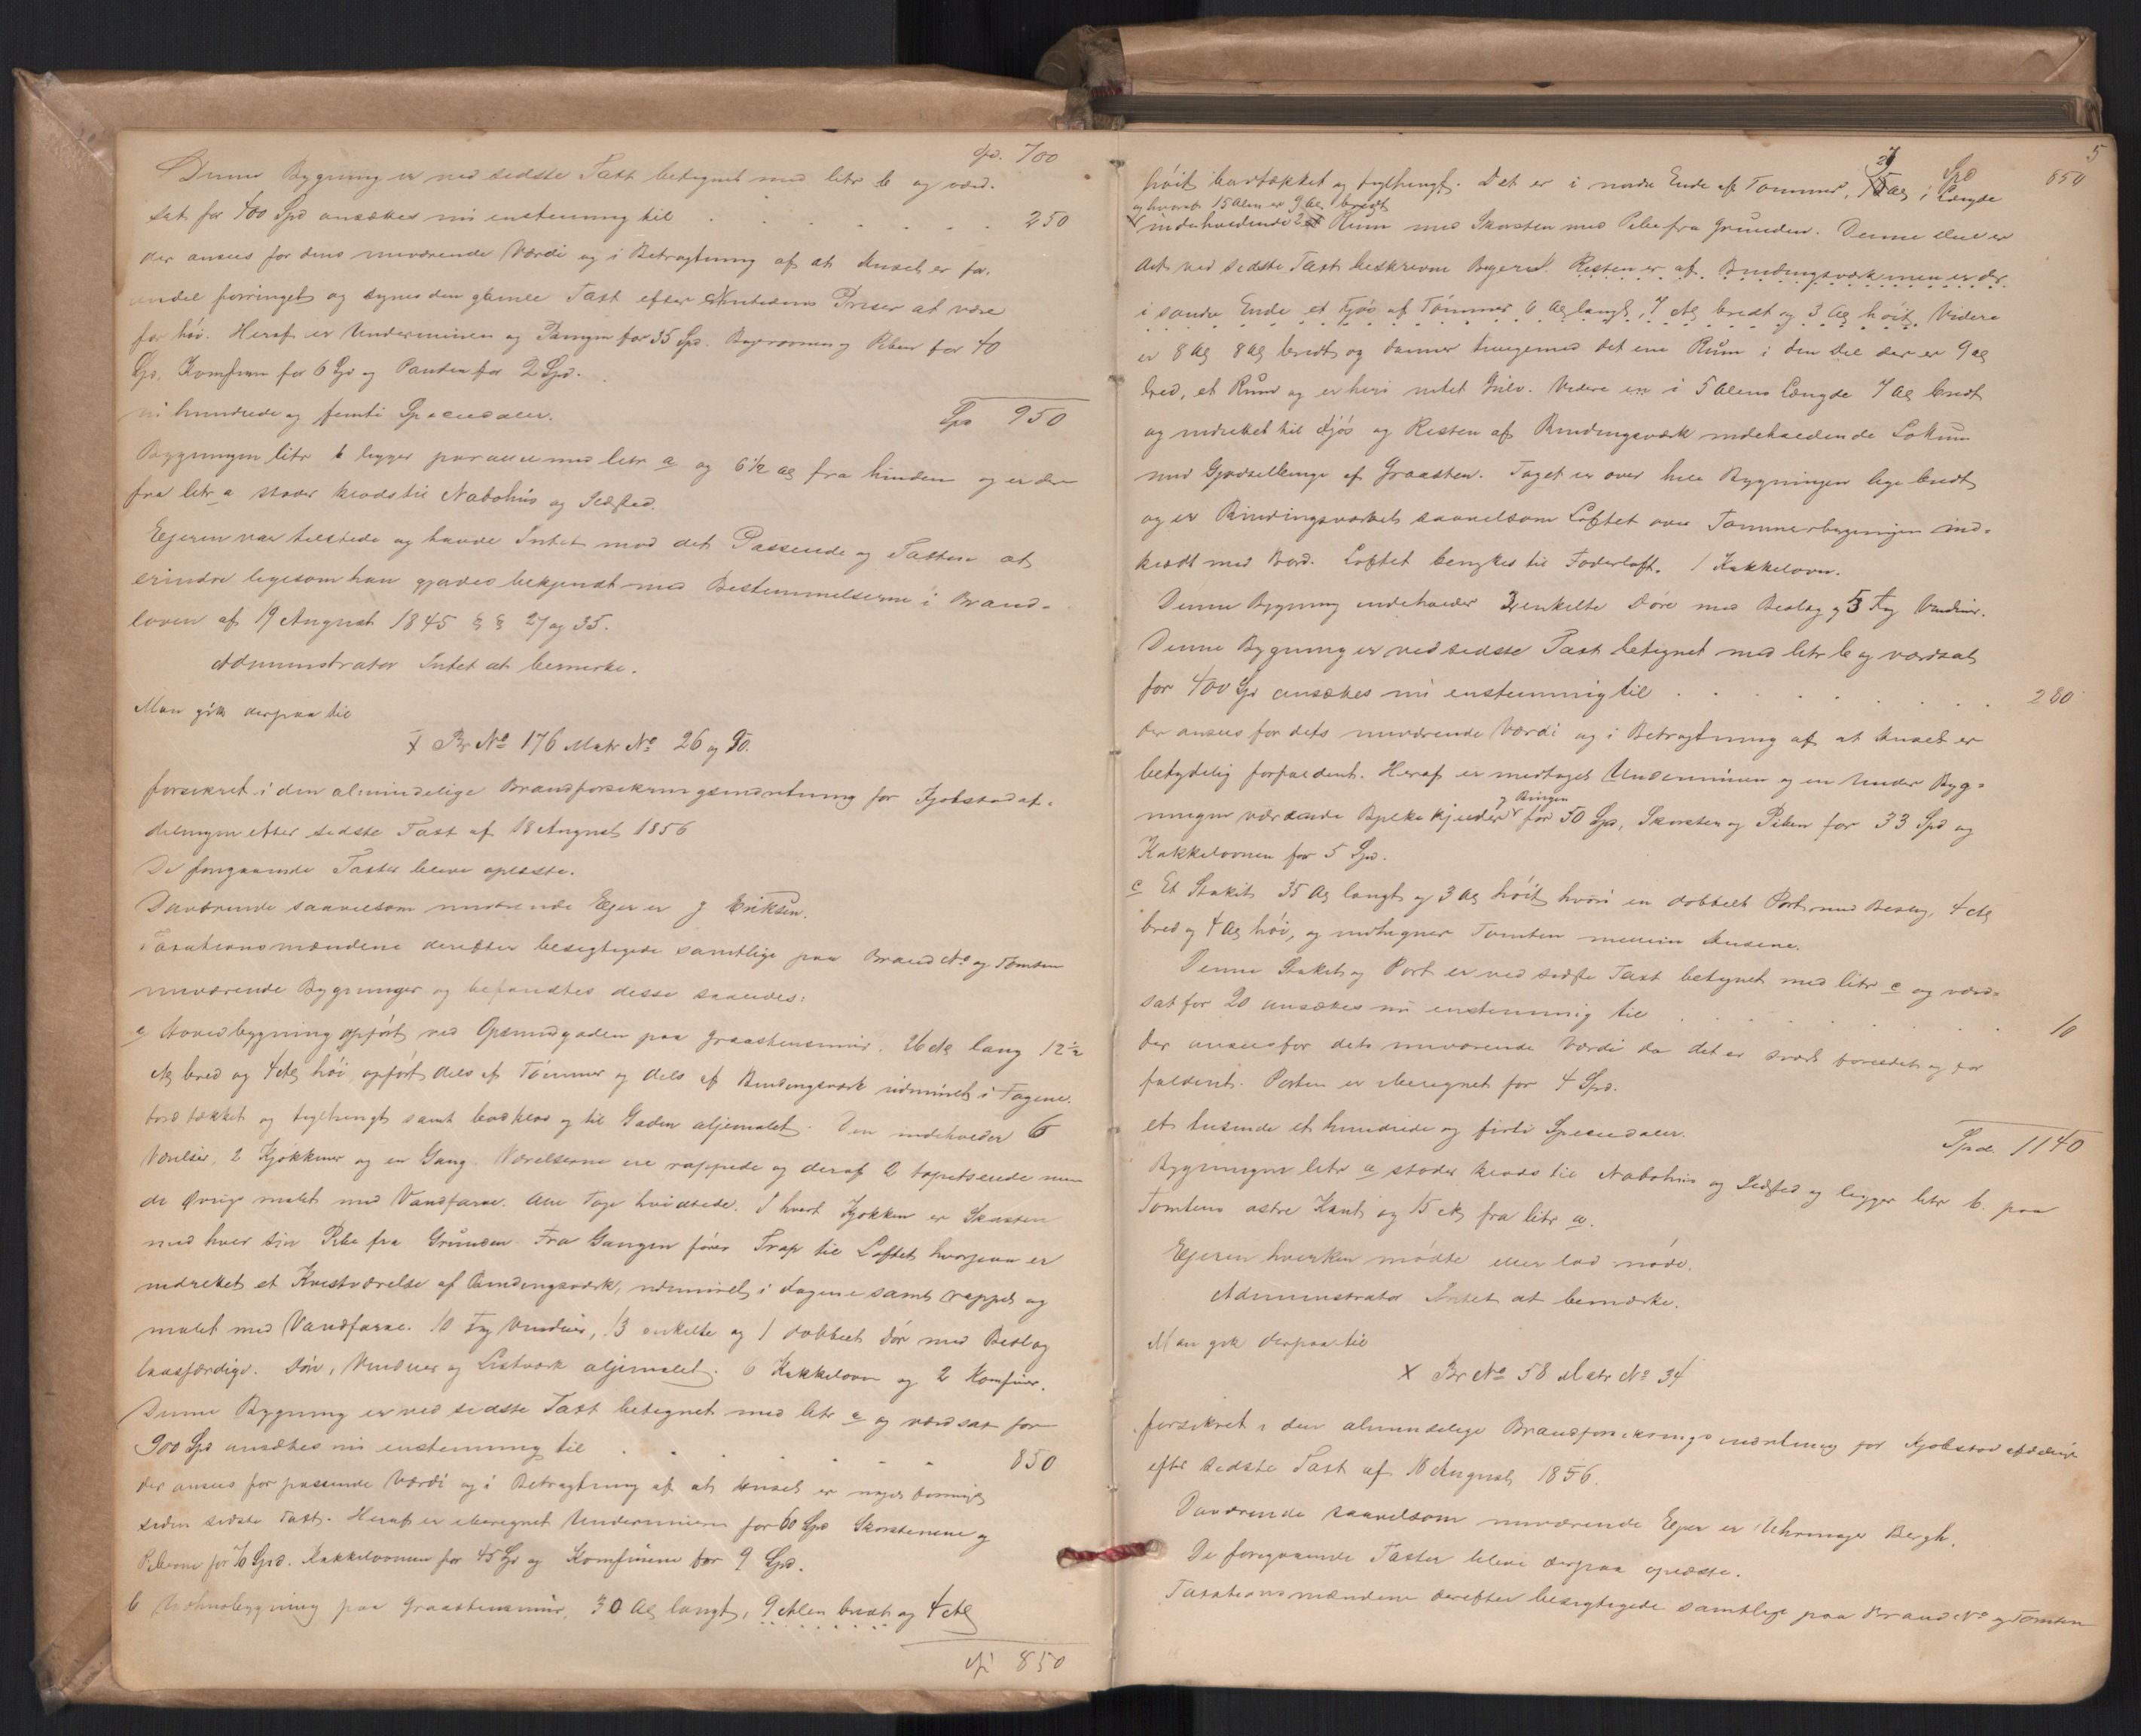 Spd. 700
Denne Bygning er ved sidste Taxt betegnet med litr b og værd-
sat for 400 Spd ansættes nu enstemmig til 250
der ansees for dens nuværende Værdi og i Betragtning af at Huset er for-
andel forringet og synes den gamle Taxt efter Nutidens Priser at være
for høi. Heraf er Undermuren og Pangen for 35 Spd. Bagerovnen og Piben for 40
Spd, Komfuren for 6 Spd og Panden for 2 Spd.
ni hundrede og femti Speciedaler. Spd 950
Bygningen litr b ligger paralel med litr a og 6 1/2 Al fra hinden og er den
fra litr a støder klods til Nabohus og Ildsted.
Ejeren var tilstede og havde Intet mod det Passerede og Taxten at
erindre ligesom han gjordes bekjendt med Bestemmelserne i Brand-
loven af 19 August 1845 § § 27 og 35.
Administrator Intet at bemerke.
Man gik derpaa til
X Br No 176 Matr No 26 og 90.
forsikret i den almindelige Brandforsikringsindretning for Kjøbstadaf-
delingen efter sidste Taxt af 18 August 1856
De foregaaende Taxter bleve oplæste.
Daværende saavelsom nuværende Ejer er J Eriksen.
Taxationsmændene derefter besigtigede samtlige paa Brand No og Tomten
nuværende Bygninger og befandtes disse saaledes:
a Hovedbygning opført ved Gaden paa Graastensmur. 26 Al lang 12 1/2
Al bred og 4 Al høi, opført dels af Tømmer og dels af Bindingsværk udmuret i Fagene.
bordtækket og teglhængt samt bordklæd og til Gaden oljemalet. Den indeholder 6
Værelser, 2 Kjøkkener og en Gang. Værelserne ere rappede og deraf 2 tapetserede men
de øvrige malet med Vandfarve. Alle Tage hvidtede. I hvert Kjøkken er Skorsten
med hver sin Pibe fra Grunden. Fra Gangen fører Trap til Loftet hvorpaa er
indrettet et Kvistværelse af Bindingsværk, udmuret i Fagene samt rappet og
malet med Vandfarve. 10 Fag Vinduer, 13 enkelte og 1 dobbelt Dør med Beslag
laasfærdige. Døre, Vinduer og Listværk oljemalet. 6 Kakkelovne og 2 Komfurer.
Denne Bygning er ved sidste Taxt betegnet med litr a og værdsat for
900 Spd ansættes nu enstemmig til 850
der ansees for passende Værdi og i Betragtning af at Huset er noget forringet
siden sidste Taxt. Heraf er iberegnet Undermuren for 60 Spd Skorstenene og
Piberne for 70 Spd. Kakkelovnene for 45 Spd og Komfurene for 9 Spd.
b Udhusbygning paa Graastensmur, 30 Al langt, 9 Alen bredt og 4 Al
Spd 850
5
27 Spd 850
høit bordtækket og teglhængt. Det er i nordre Ende af Tømmer, Al i Længde
og hvoraf 15 Alen er 9 Al bredt
indeholdende 2 Rum med Skorsten med Pibe fra Grunden. Denne Del er
det ved sidste Taxt beskrevne Bageri. Resten er af Bindingsværk men er der
i søndre Ende et Fjøs af Tømmer 6 Al langt, 7 Al bredt og 3 Al høit. Videre
er 8 Al 8 Al bredt og danner tilligemed det ene Rum i den Del der er 9 Al
bred, et Rum og er heri intet Gulv. Videre er i 5 Alens Længde 7 Al bredt
og indrettet til Fjøs og Resten af Bindingsværk indeholdende Lokum
med Gjødselbinge af Graasten. Taget er over hele Bygningen lige bredt
og er Bindingsværket saavelsom Loftet over Tømmerbygningen ind-
klædt med Bord. Loftet benyttes til Foderloft. 1 Kakkelovn.
Denne Bygning indeholder 3 enkelte Døre med Beslag og 5 Fag Vinduer.
Denne Bygning er ved sidste Taxt betegnet med litr b og værdsat
for 400 Spd ansættes nu enstemmig til 280
der ansees for dets nuværende Værdi og i Betragtning af at Huset er
betydelig forfaldent. Heraf er medtaget Undermuren og en under Byg-
og Bingen
ningen værende Bjelkekjelder for 50 Spd, Skorsten og Piben for 33 Spd og
Kakkelovnen for 5 Spd.
c Et Stakit 35 Al langt og 3 Al høit hvori en dobbelt Port med Beslag, 4 Al
bred og 4 Al høi, og indhegner Tomten mellem Husene.
Denne Stakit og Port er ved sidste Taxt betegnet med litr c og værd-
sat for 20 ansættes nu enstemmig til 10
der ansees for dets nuværende Værdi da det er svært forældet og for
faldent. Porten er iberegnet for 4 Spd.
et tusende et hundrede og firti Speciedaler. Spd. 1140
Bygningen litr a støder klods til Nabohus og Ildsted og ligger litr b. paa
Tomtens østre Kant og 15 Al fra litr a.
Ejeren hverken mødte eller lod møde.
Administrator Intet at bemærke.
Man gik derpaa til
X Br No 58 Matr No 34
forsikret i den almindelige Brandforsikringsindretning for Kjøbstadafdelingen
efter sidste Taxt af 18 August 1856.
Daværende saavelsom nuværende Ejer er Uhrmager Bergh.
De foregaaende Taxter bleve derpaa oplæste.
Taxationsmændene derefter besigtigede samtlige paa Brand No og Tomten